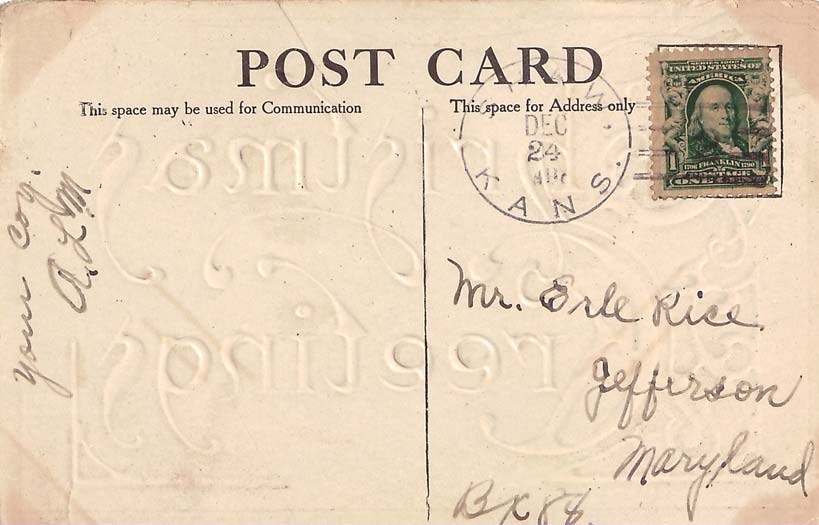 POST CARD
This space may be used for Communication
This space for Address only
DEC
24
KANS.
SERIES 1902
UNITED STATES OF
AMERICA
1
FRANKLIN
POSTAGE
ONE CENT
your
A.L.M
Mr. Erle Rice
Jefferson
Maryland
Bx 88.
Christmas
Greetings